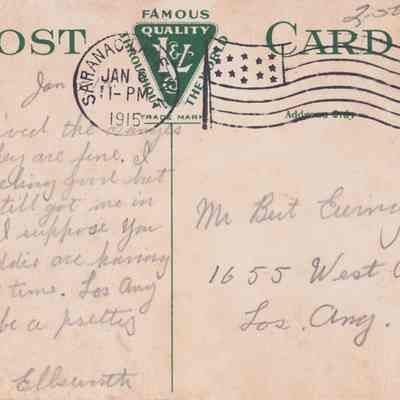 FAMOUS
OST CARD
QUALITY
THROUGHOUT THE WORLD
TRADE MARK
SARANAC
JAN
11-PM
1915
Address Only
Jan
ived the Oranges
hey are fine. I
eeling good but
till got me in
I suppose you
ddie are having
time. Los Ang
be a pretty
Ellsworth
Mr Burt Ewing
1655 West
Los. Ang.